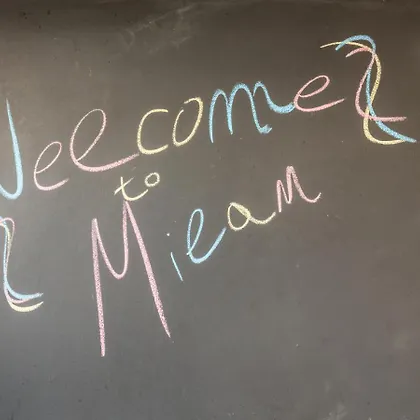 Welcome
to
Milam